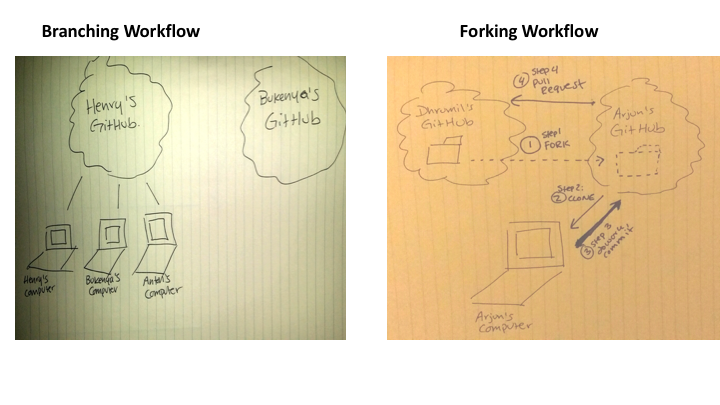 Branching Workflow
Forking Workflow
Henry's
GitHub.
Bukenya's
GitHub
Henry's
Computer
Bukenya's
Computer
Antal's
Computer
④ Step 4
Pull
Request
Dhrumil's
GitHub
Arjun's
GitHub
① Step 1
FORK
Step 2:
② CLONE
③ Step 3
commit
Arjun's
Computer